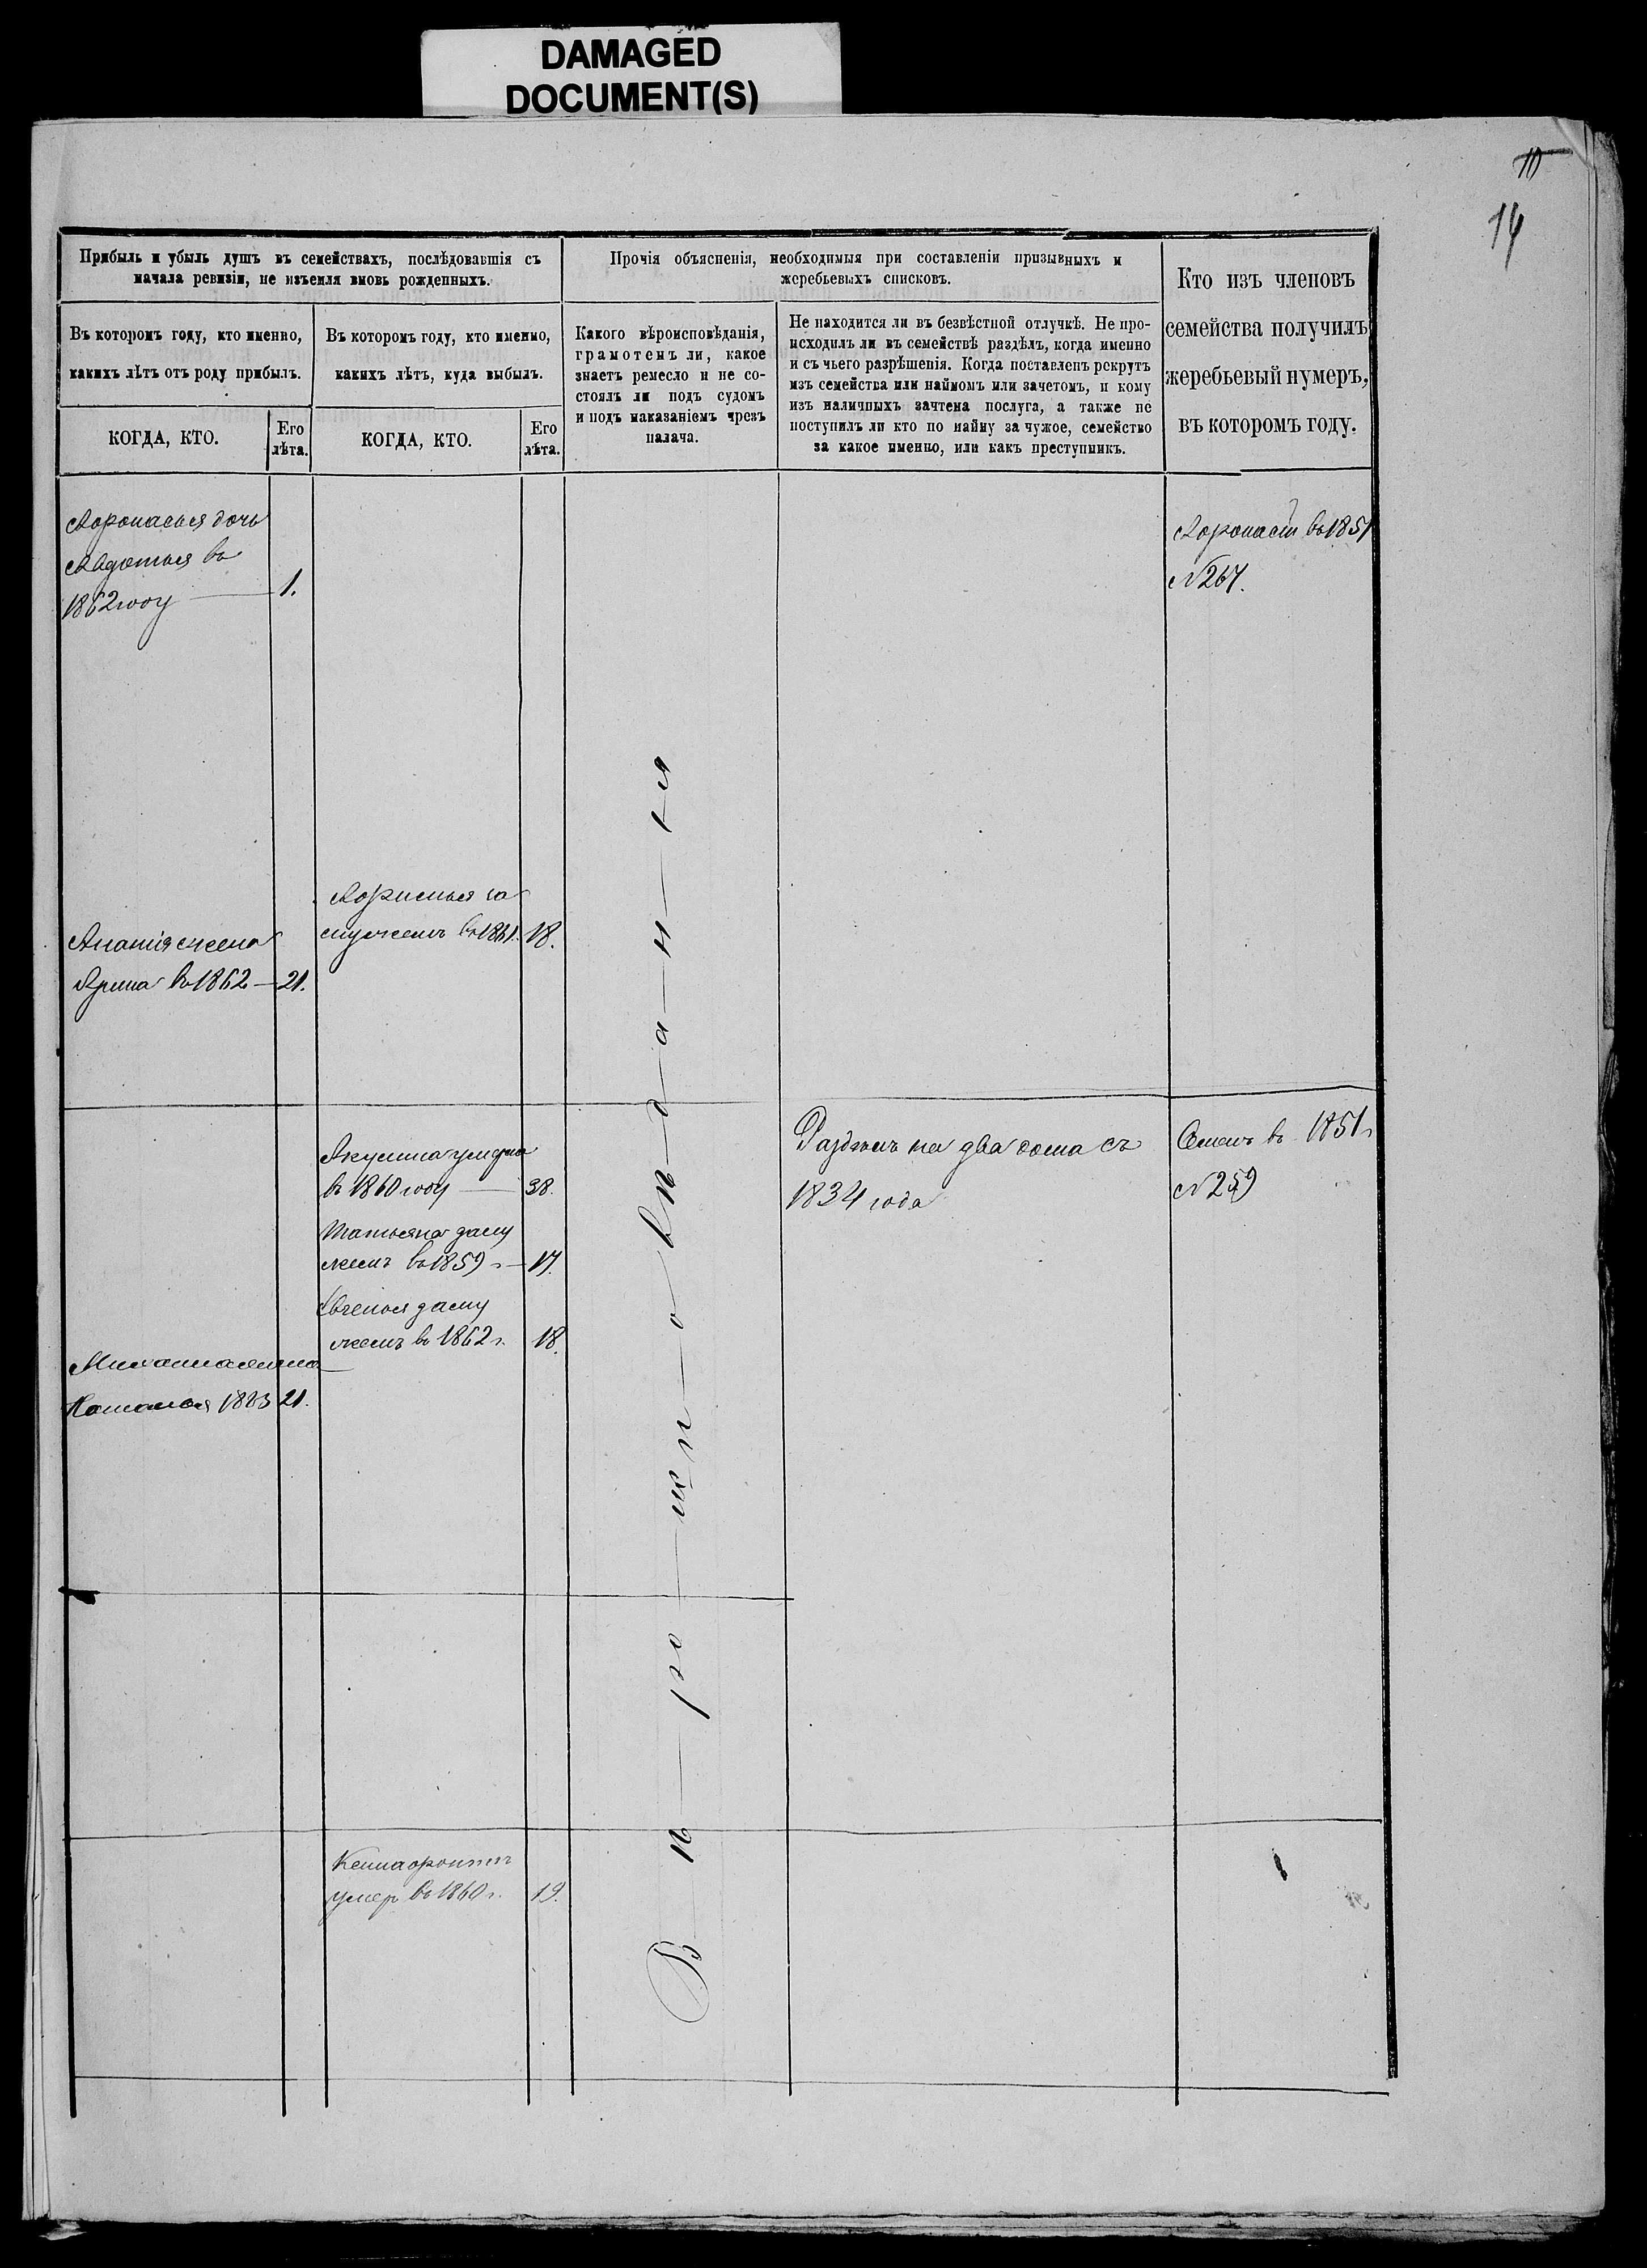 DAMAGED
DOCUMENT(S)
10
14
Прибыль и убыль душъ въ семействахъ, послѣдовавшія съ
начала ревизіи, не изъемля вновь рожденныхъ.
Въ которомъ году, кто именно,
какихъ лѣтъ отъ роду прибылъ.
КОГДА, КТО.
Его
лѣта.
Въ которомъ году, кто именно,
какихъ лѣтъ, куда выбылъ.
КОГДА, КТО.
Его
лѣта.
Прочія объясненія, необходимыя при составленіи призывныхъ и
жеребьевыхъ списковъ.
Какого вѣроисповѣданія,
грамотенъ ли, какое
знаетъ ремесло и не со-
стоялъ ли подъ судомъ
и подъ наказаніемъ чрезъ
палача.
Не находится ли въ безвѣстной отлучкѣ. Не про-
исходилъ ли въ семействѣ раздѣлъ, когда именно
и съ чьего разрѣшенія. Когда поставленъ рекрутъ
изъ семейства или наймомъ или зачетомъ, и кому
изъ наличныхъ зачтена послуга, а также не
поступилъ ли кто по найму за чужое, семейство
за какое именно, или какъ преступникъ.
Кто изъ членовъ
семейства получилъ
жеребьевый нумеръ,
въ которомъ году.
дочь
Авдотья въ
1862 году 1.
въ 1851
N 267.
замужемъ въ 1861. 18.
жена
Арина въ 1862 21.
Акулина умерла
въ 1860 году 38.
Татьяна заму
жемъ въ 1859 г. 17.
Евгенья заму
жемъ въ 1862 г. 18.
Наталья 1863 21.
Раздѣлъ на два дома съ
1834 года
Семенъ въ 1851 г.
N 259
умеръ въ 1860 г. 19.
вѣданія